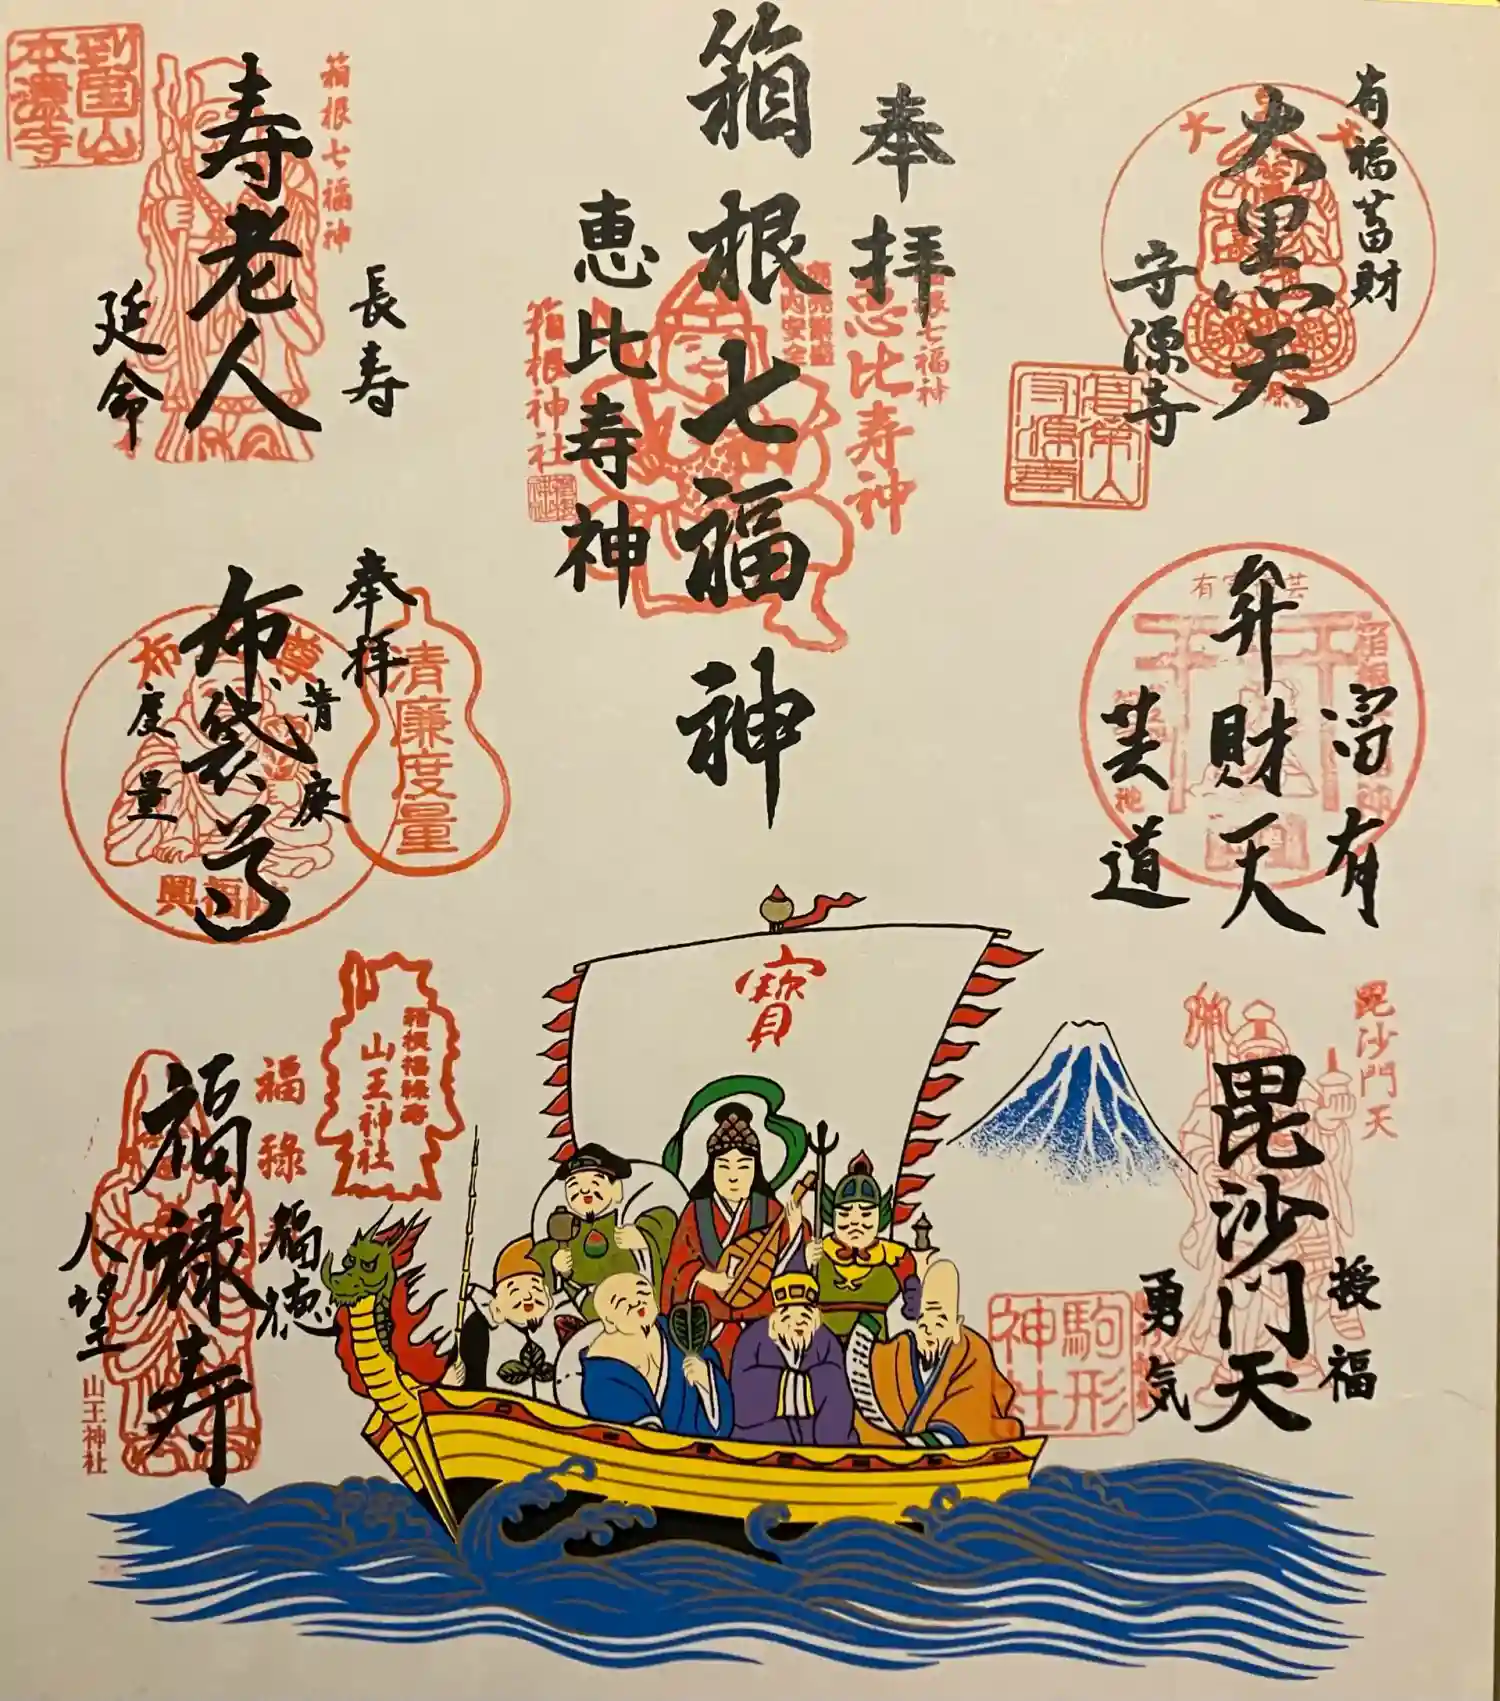 有福蓄財
大黒天
守源寺
奉拝
箱根七福神
恵比寿神
箱根七福神
恵比寿神
箱根神社
箱根七福神
長寿
寿老人
延命
到富山
本還寺
富有
弁財天
芸道
奉拝
清廉
布袋尊
度量
清廉度量
布 尊
興福院
寳
毘沙門天
授福
毘沙门天
勇気
駒形
神社
箱根福禄寿
山王神社
福禄
福徳
福禄寿
人望
山王神社